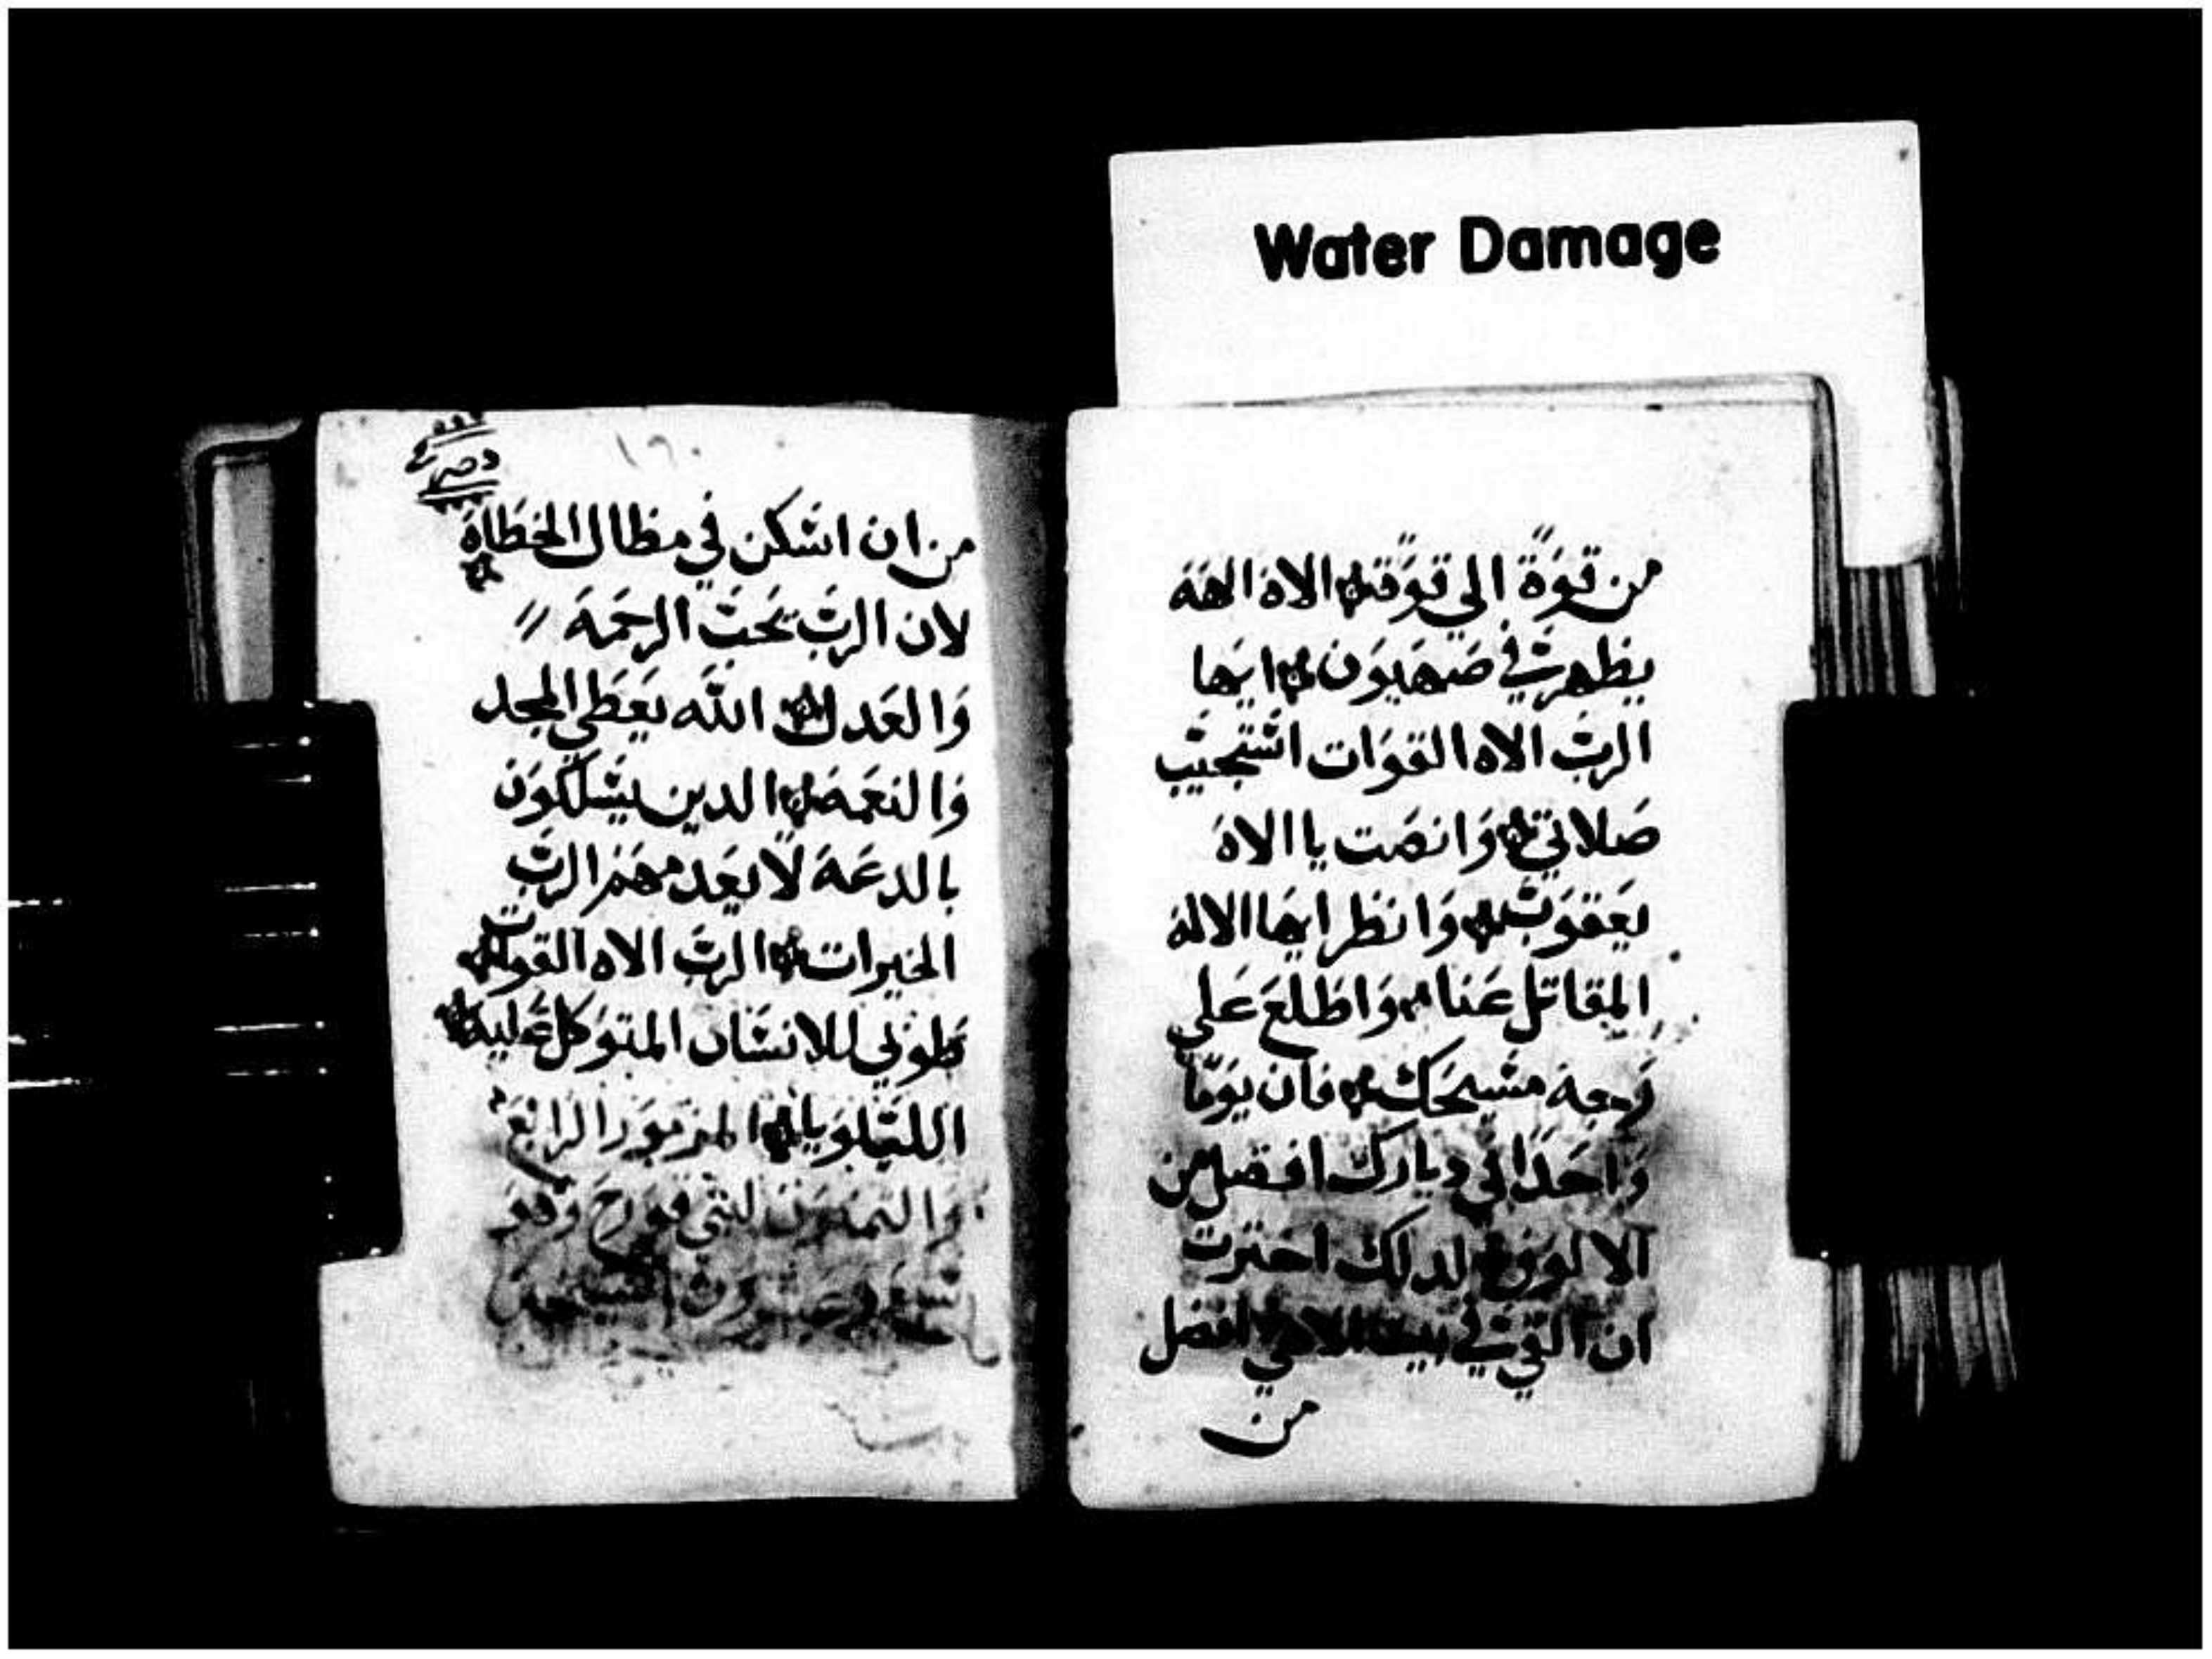 Water Damage
من قوة الي قوة الاه الالهة
يظهر في صهيون ايها
الرب الاه القوات استجيب
صلاتي وانصت يا الاه
يعقوب وانظر ايها الاله
المقاتل عنا واطلع علي
وجه مسيحك فان يوما
واحدا في ديارك افضل من
الالوف لدلك اخترت
ان القي في بيت الاهي افضل
من
١٦٠
من ان اسكن في مظال الخطاة
لان الرب يحب الرحمة
والعدل الله يعطي المجد
والنعمة الدين يسلكون
بالدعة لا يعدمهم الرب
الخيرات الرب الاه القوات
طوبي للانسان المتوكل عليك
الليلويا المزمور الرابع
والتمنون لبني قورح وهو